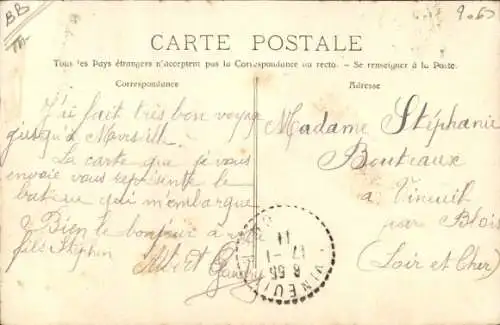 BB
9.65
CARTE POSTALE
Tous les Pays étrangers n'acceptent pas la Correspondance au recto. - Se renseigner à la Poste.
Correspondance
Adresse
J'ai fait très bon voyage
jusqu'à Marseille.
La carte que je vous
envoie vous représente le
bateau qui m'embarque
Bien le bonjour à votre
fils Stéphen
Albert
Madame Stéphanie
Bouteaux
à Vineuil
par Blois
(Loir et Cher)
VINEUIL
8 55
17-1
11